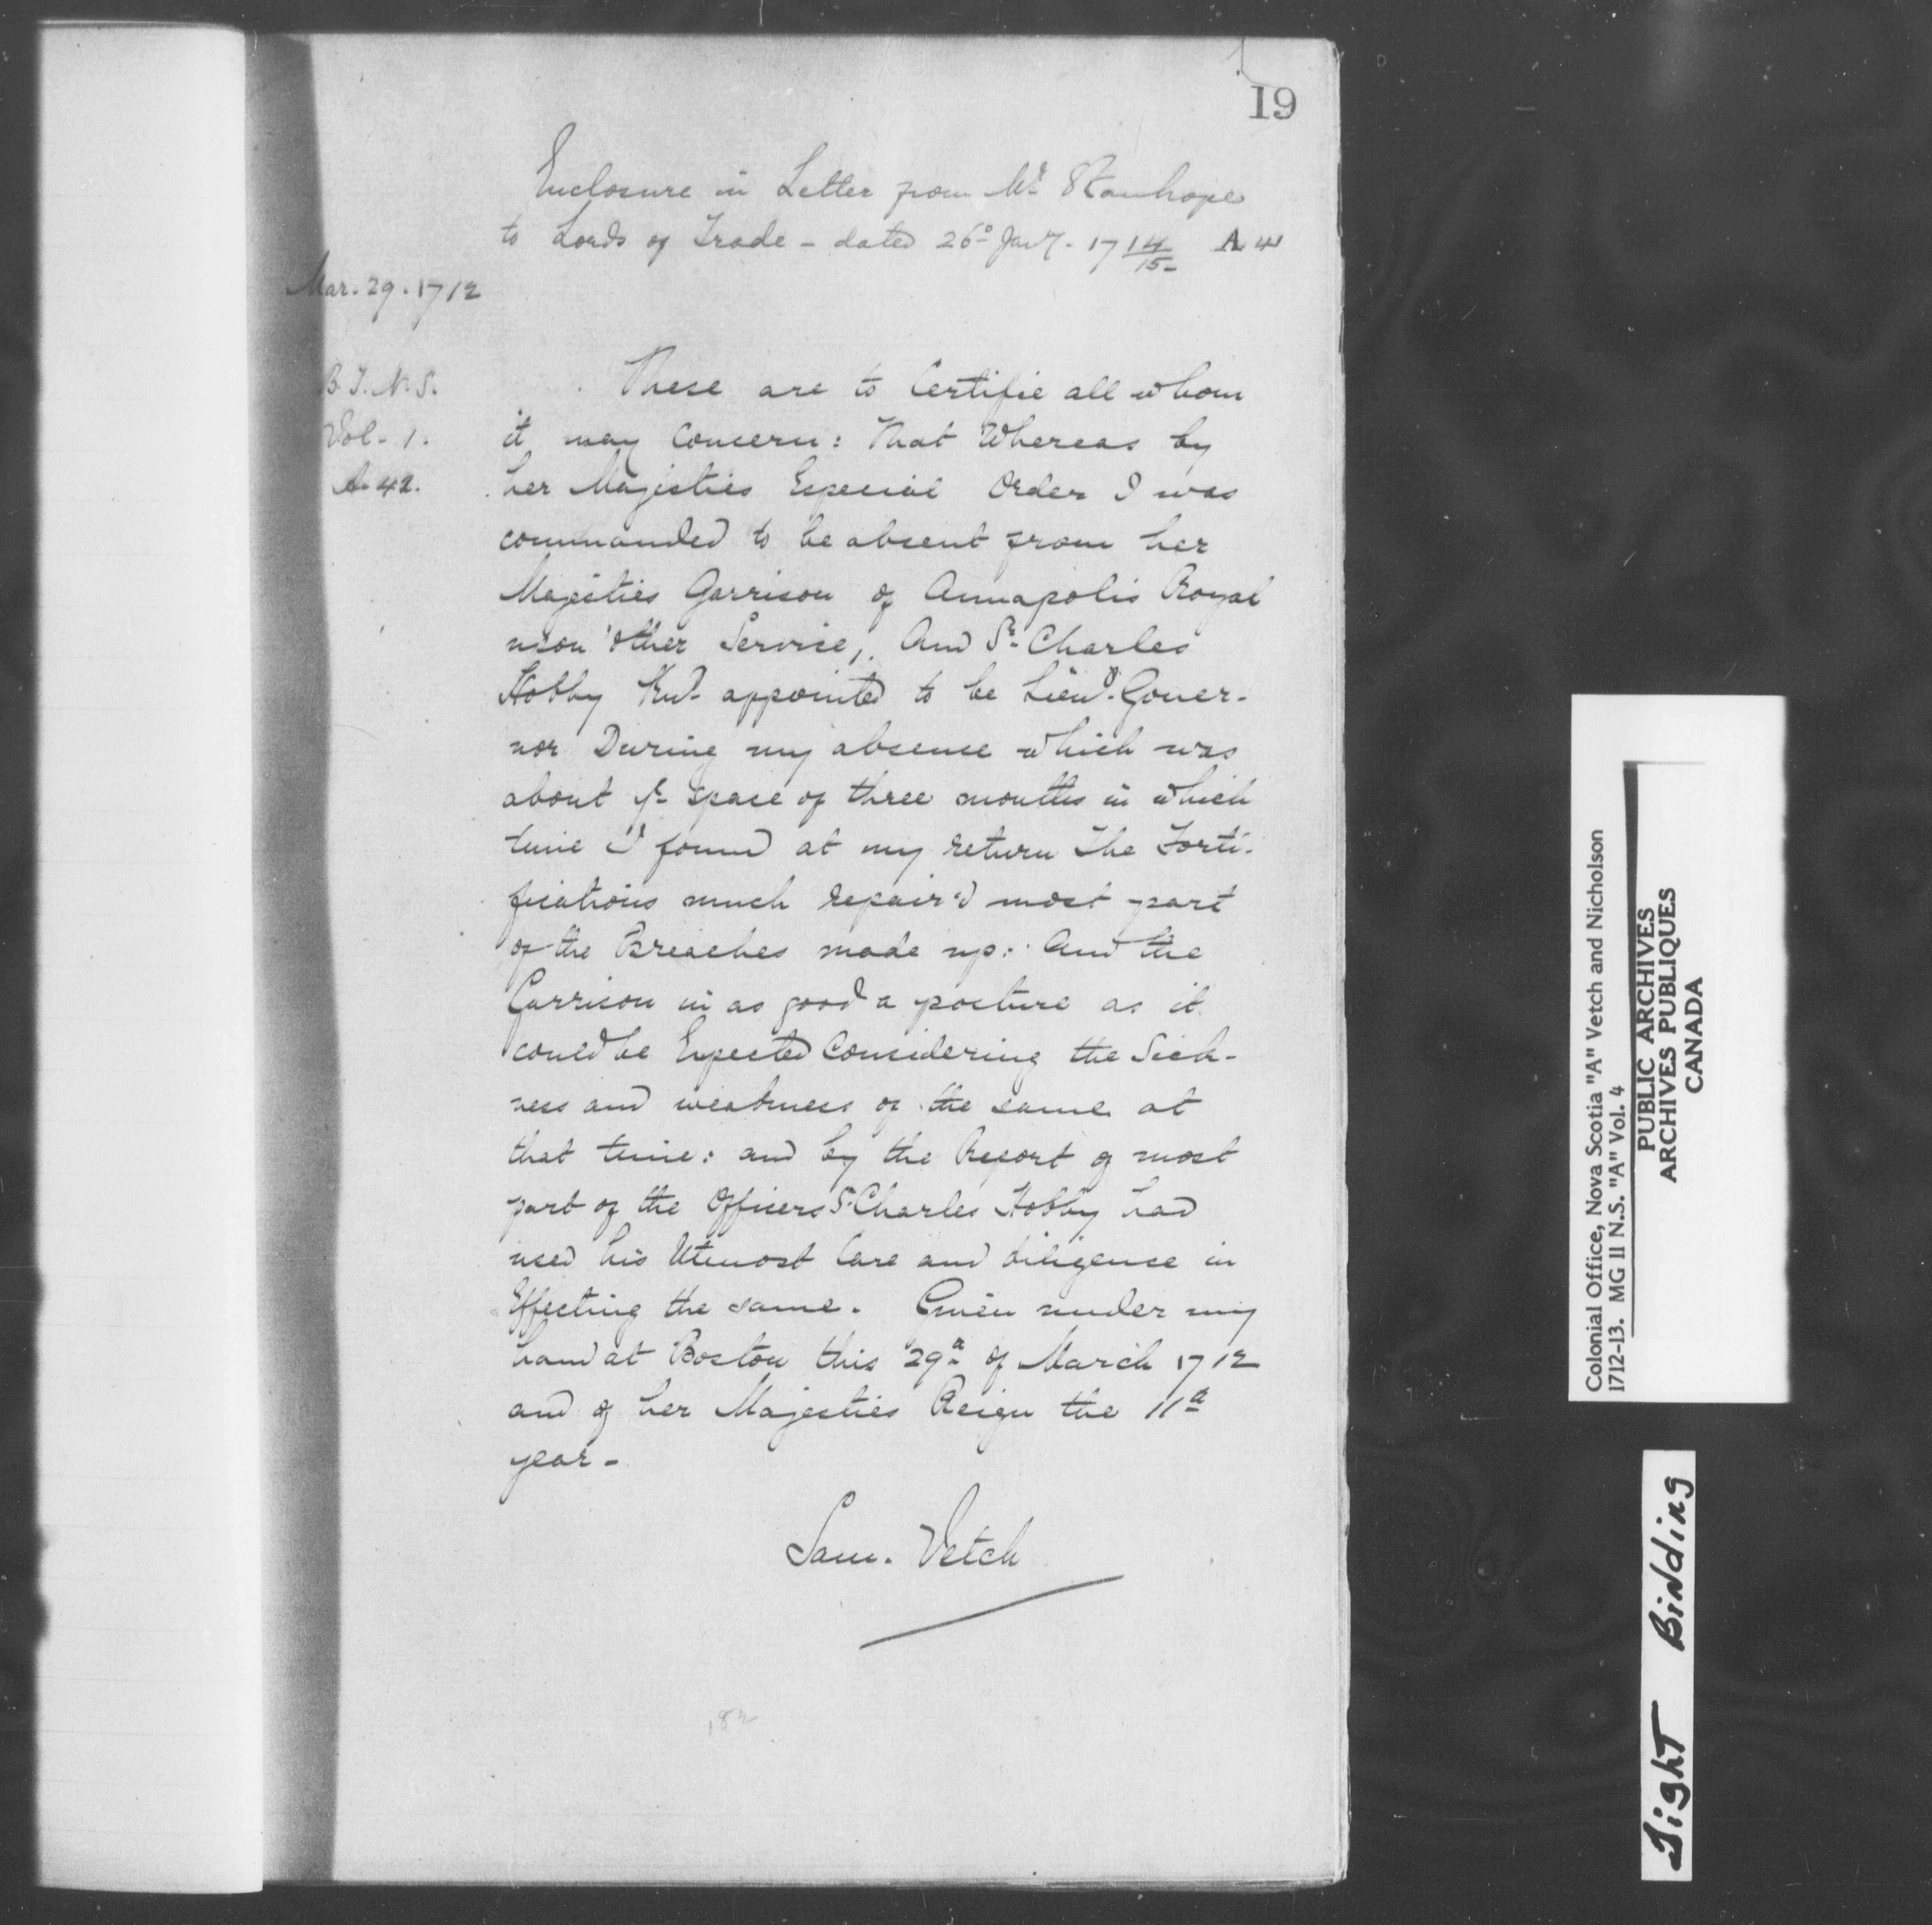 19
Enclosure in Letter from Mr Stanhope
to Lords of Trade - dated 26o Jany. 17 14/15 - A 41
Mar. 29. 1712
B. T. N. S.
Vol. 1.
A. 42.
These are to Certifie all whom
it may Concern: That Whereas by
her Majesties Especial Order I was
commanded to be absent from her
Majesties Garrison of Annapolis Royal
upon other Service, And Sr Charles
Hobby Knt appointed to be Lieut. Gouer-
nor During my absence which was
about ye space of three months in which
time I found at my return The Forti-
fications much repair'd most part
of the Breaches made up: And the
Garrison in as good a posture as it
could be Expected Considering the Sick-
ness and weakness of the same at
that time: and by the Report of most
part of the Officers Sr Charles Hobby had
used his Utmost Care and diligence in
Effecting the same. Given under my
hand at Boston this 29a of March 1712
and of her Majesties Reign the 11a
year -
Sam. Vetch
182
Colonial Office, Nova Scotia "A" Vetch and Nicholson
1712-13. MG 11 N.S. "A" Vol. 4
PUBLIC ARCHIVES
ARCHIVES PUBLIQUES
CANADA
Tight Binding